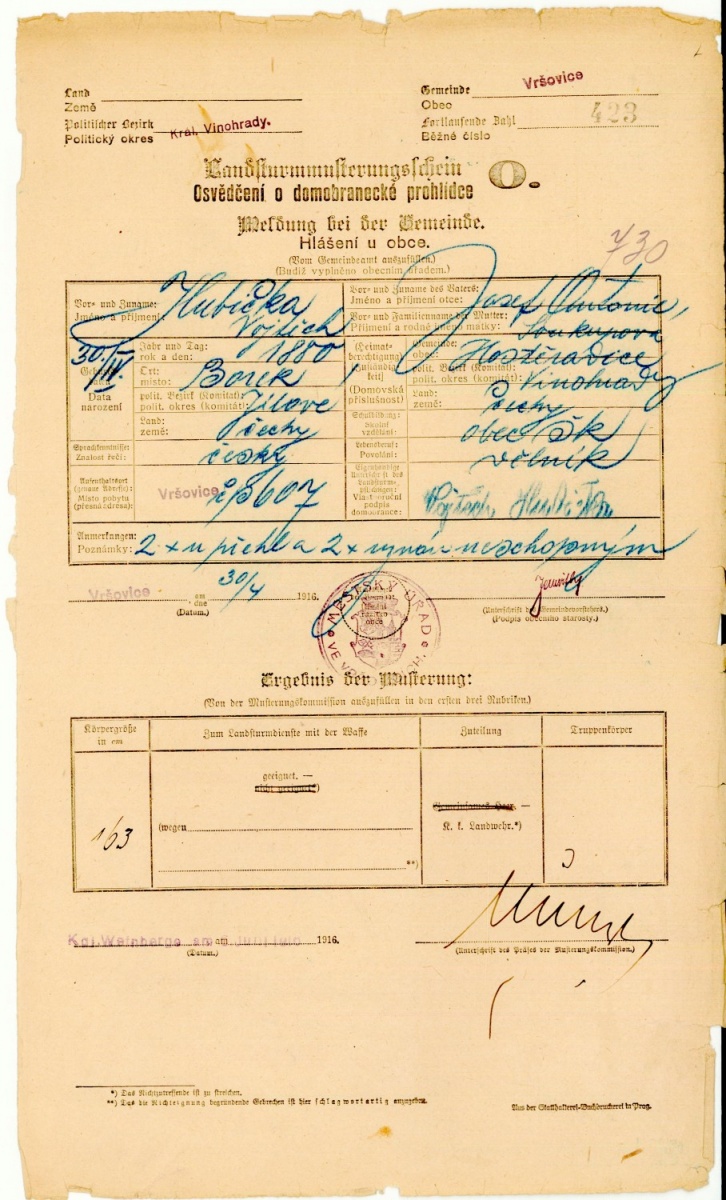 Land
Země
Gemeinde
Obec
Vršovice
Politischer Bezirk
Politický okres
Král. Vinohrady.
Fortlaufende Zahl
Běžné číslo
423
Landsturmmusterungsschein
Osvědčení o domobranecké prohlídce
O.
Meldung bei der Gemeinde.
Hlášení u obce.
730
(Vom Gemeindeamt auszufüllen.)
(Budiž vyplněno obecním úřadem.)
Vor- und Zuname:
Jméno a příjmení:
Hubička
Vojtěch
Vor- und Zuname des Vaters:
Jméno a příjmení otce:
Josef
Vor- und Familienname der Mutter:
Příjmení a rodné jméno matky:
Antonie,
Soukupova
30.
IV.
Data
narození
Jahr und Tag:
rok a den:
1880
Ort:
místo:
Borek
polit. Bezirk (Komitat):
polit. okres (komitát):
Jílové
Land:
země:
Čechy
(Heimat-
berechtigung)
(Zuständig-
keit)
(Domovská
příslušnost)
Gemeinde:
obec:
Hostěradice
polit. Bezirk (Komitat):
polit. okres (komitát):
Vinohrady
Land:
země:
Čechy
Sprachkenntnisse:
Znalost řečí:
česky
Schulbildung:
Školní
vzdělání:
obec šk
Lebensberuf:
Povolání:
dělník
Aufenthaltsort
(genaue Adresse):
Místo pobytu
(přesná adresa):
Vršovice
čp 607
Eigenhändige
Unterschrift des
Landsturm-
pflichtigen:
Vlastnoruční
podpis
domobrance:
Vojtěch Hubička
Anmerkungen:
Poznámky:
2 x u přehl a 2 x neschopným
Vršovice
am
dne
30/4
1916.
(Datum.)
MĚSTSKÝ ÚŘAD
(Unterschrift des Gemeindevorstehers.)
(Podpis obecního starosty.)
Ergebnis der Musterung:
(Von der Musterungskommission auszufüllen in den ersten drei Rubriken.)
Körpergröße
in cm
Zum Landsturmdienste mit der Waffe
Zuteilung
Truppenkörper
163
geeignet. —
(wegen
**)
K. k. Landwehr.*)
Kgl. Weinberge am
am
1916.
(Datum.)
(Unterschrift des Präses der Musterungskommission.)
*) Das Nichtzutreffende ist zu streichen.
**) Das die Nichteignung begründende Gebrechen ist hier schlagwortartig anzugeben.
Aus der Statthalterei-Buchdruckerei in Prag.